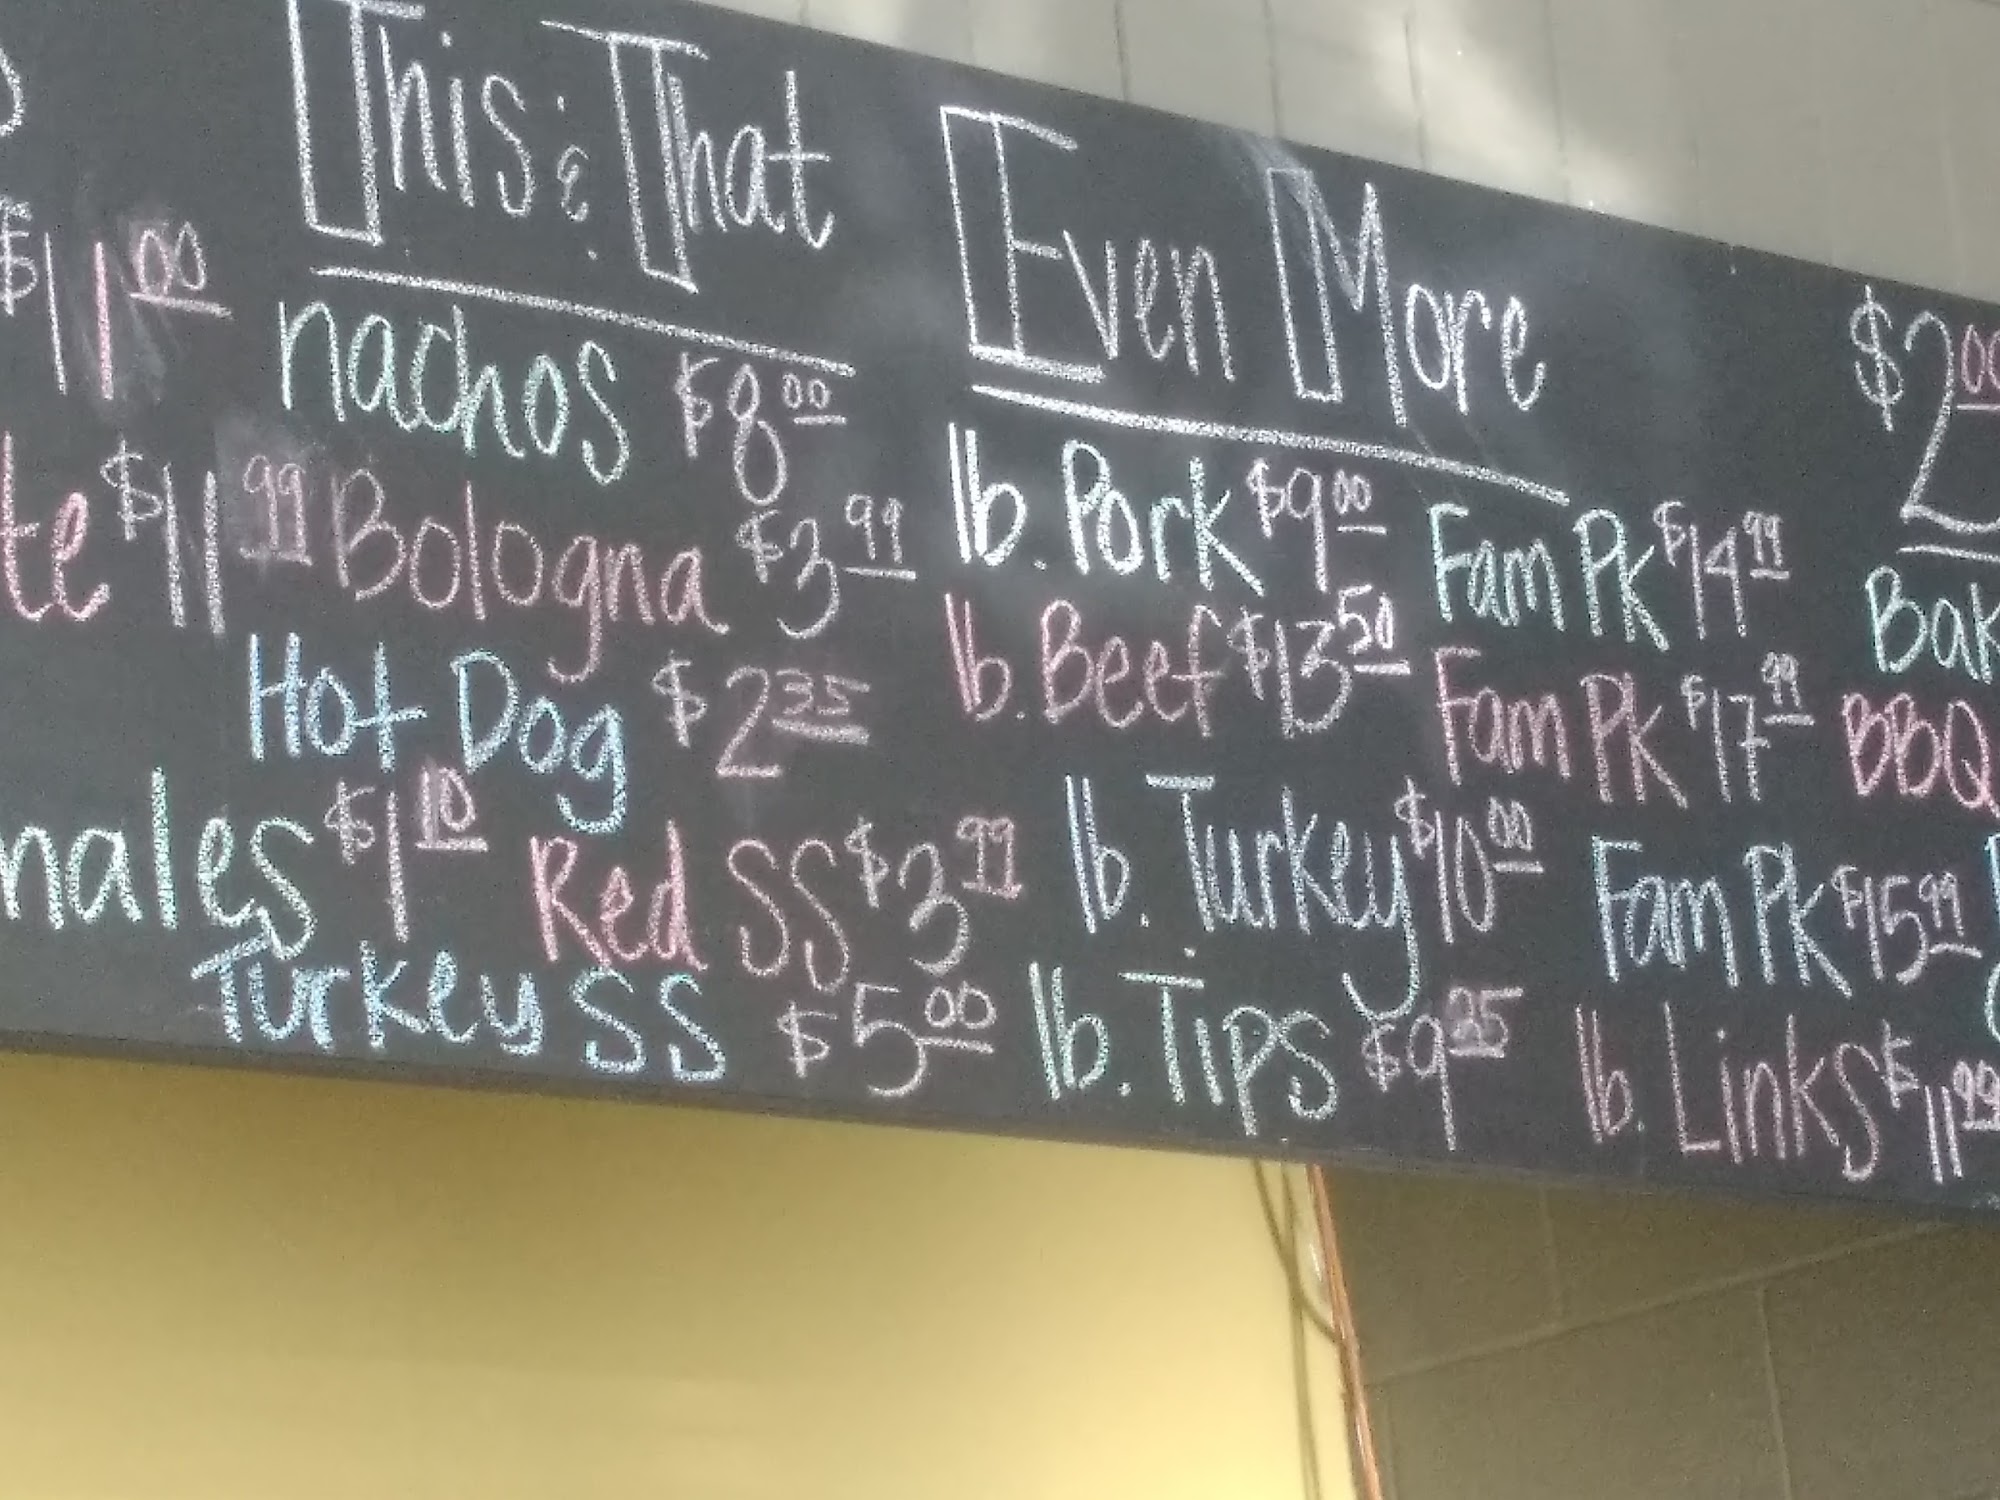 This & That
Even More
$11.00
nachos $8.00
lb. Pork $9.00 Fam Pk $14.99
$2.00
te $11.99
Bologna $3.99
lb. Beef $13.50 Fam Pk $17.99
Bak
BBQ
Hot Dog $2.35
lb. Turkey $10.00 Fam Pk $15.99
males $1.10
Red SS $3.99
lb. Tips $9.25 lb. Links $11.99
Turkey SS $5.00